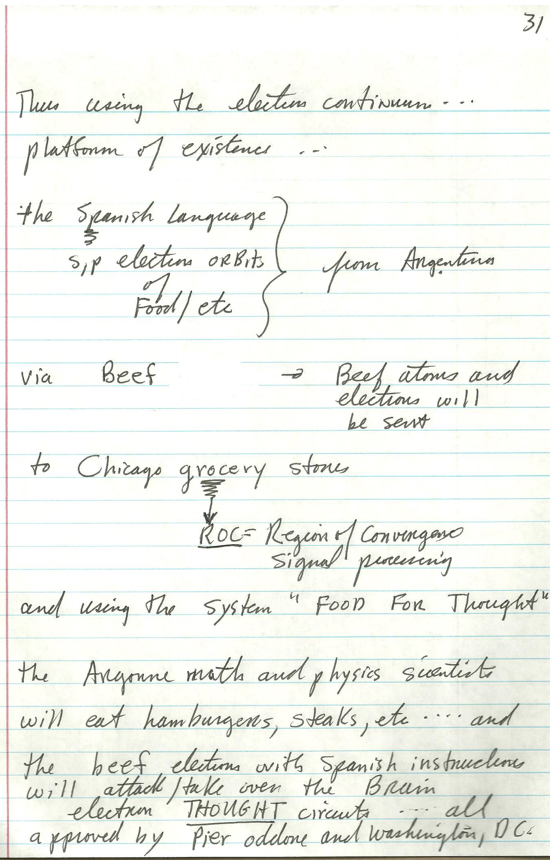 31
Thus using the election continuum ...
platform of existence ...
the Spanish Language
s,p election ORBits
of
Food/etc
from Argentina
via Beef → Beef atoms and
elections will
be sent
to Chicago grocery stores
ROC = Region of Convergence
Signal processing
and using the system " FOOD FOR Thought"
the Argonne math and physics scientists
will eat hamburgers, steaks, etc .... and
the beef elections with Spanish instructions
will attack/take over the Brain
electron THOUGHT circuits .... all
approved by Pier oddone and Washington, DC.